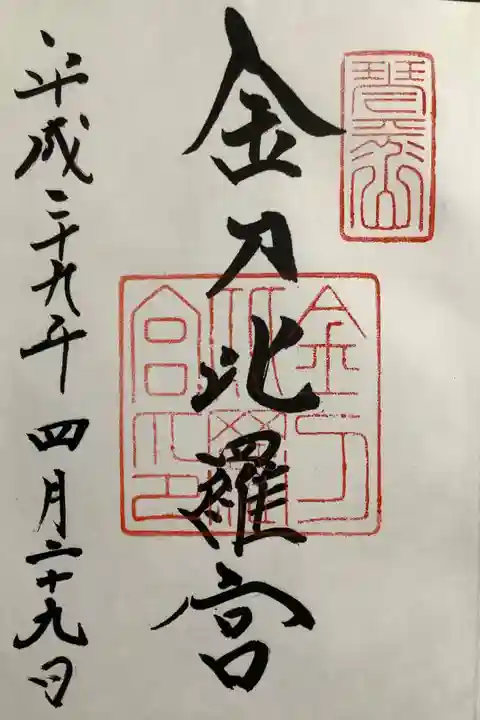 琴平山
金刀比羅宮
金刀比羅宮之印
平成二十九年 四月二十九日